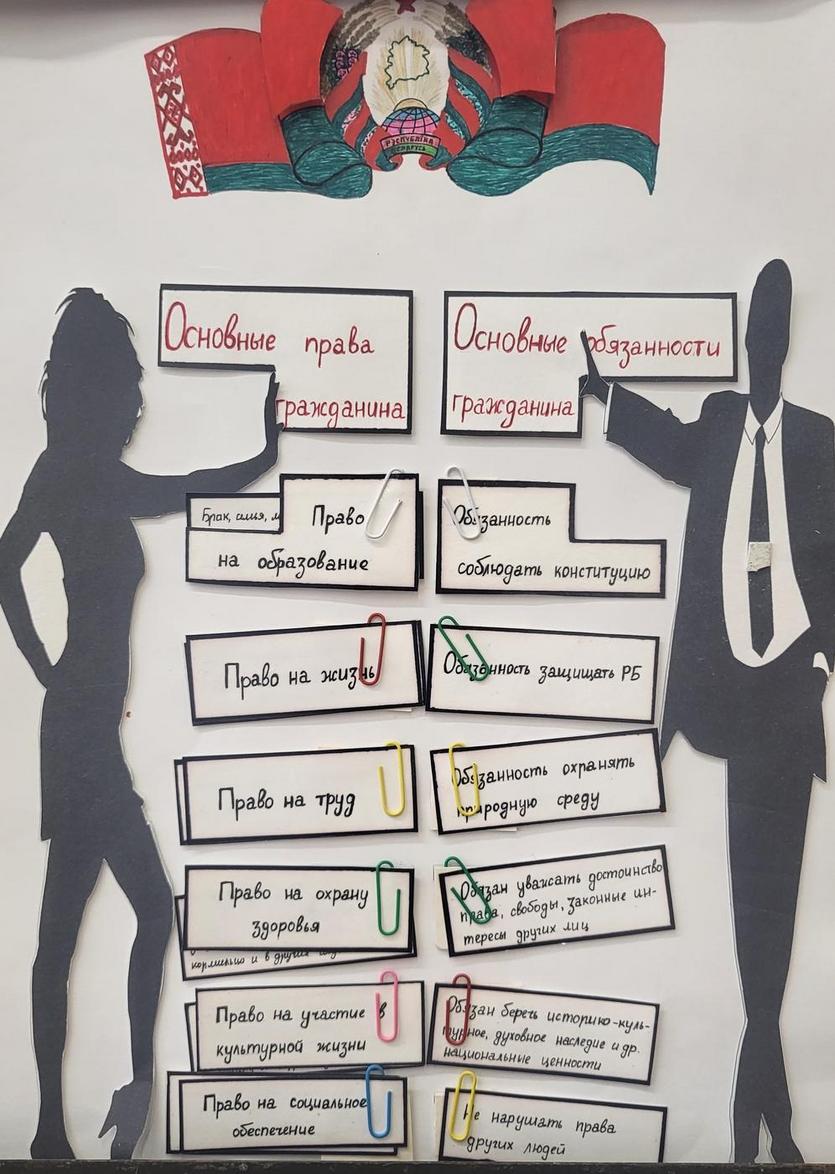 РЭСПУБЛІКА
БЕЛАРУСЬ
Основные права
гражданина
Основные обязанности
гражданина
Брак, семья,
Право
на образование
Обязанность
соблюдать конституцию
Право на жизнь
Обязанность защищать РБ
Право на труд
Обязанность охранять
природную среду
Право на охрану
здоровья
кормильца и в других
Обязан уважать достоинство
права, свободы, законные ин-
тересы других лиц
Право на участие в
культурной жизни
Обязан беречь историко-куль-
турное, духовное наследие и др.
национальные ценности
Право на социальное
обеспечение
Не нарушать права
других людей